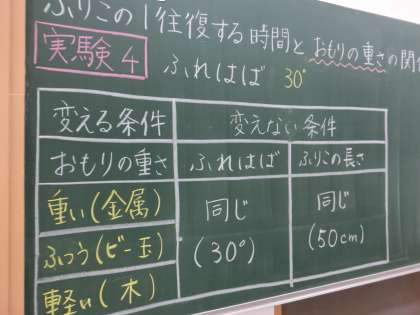 ふりこの1往復する時間とおもりの重さの関
実験4 ふれはば 30°
変える条件 変えない条件
おもりの重さ ふれはば ふりこの長さ
重い(金属) 同じ 同じ
ふつう(ビー玉) (30°) (50cm)
軽い(木)